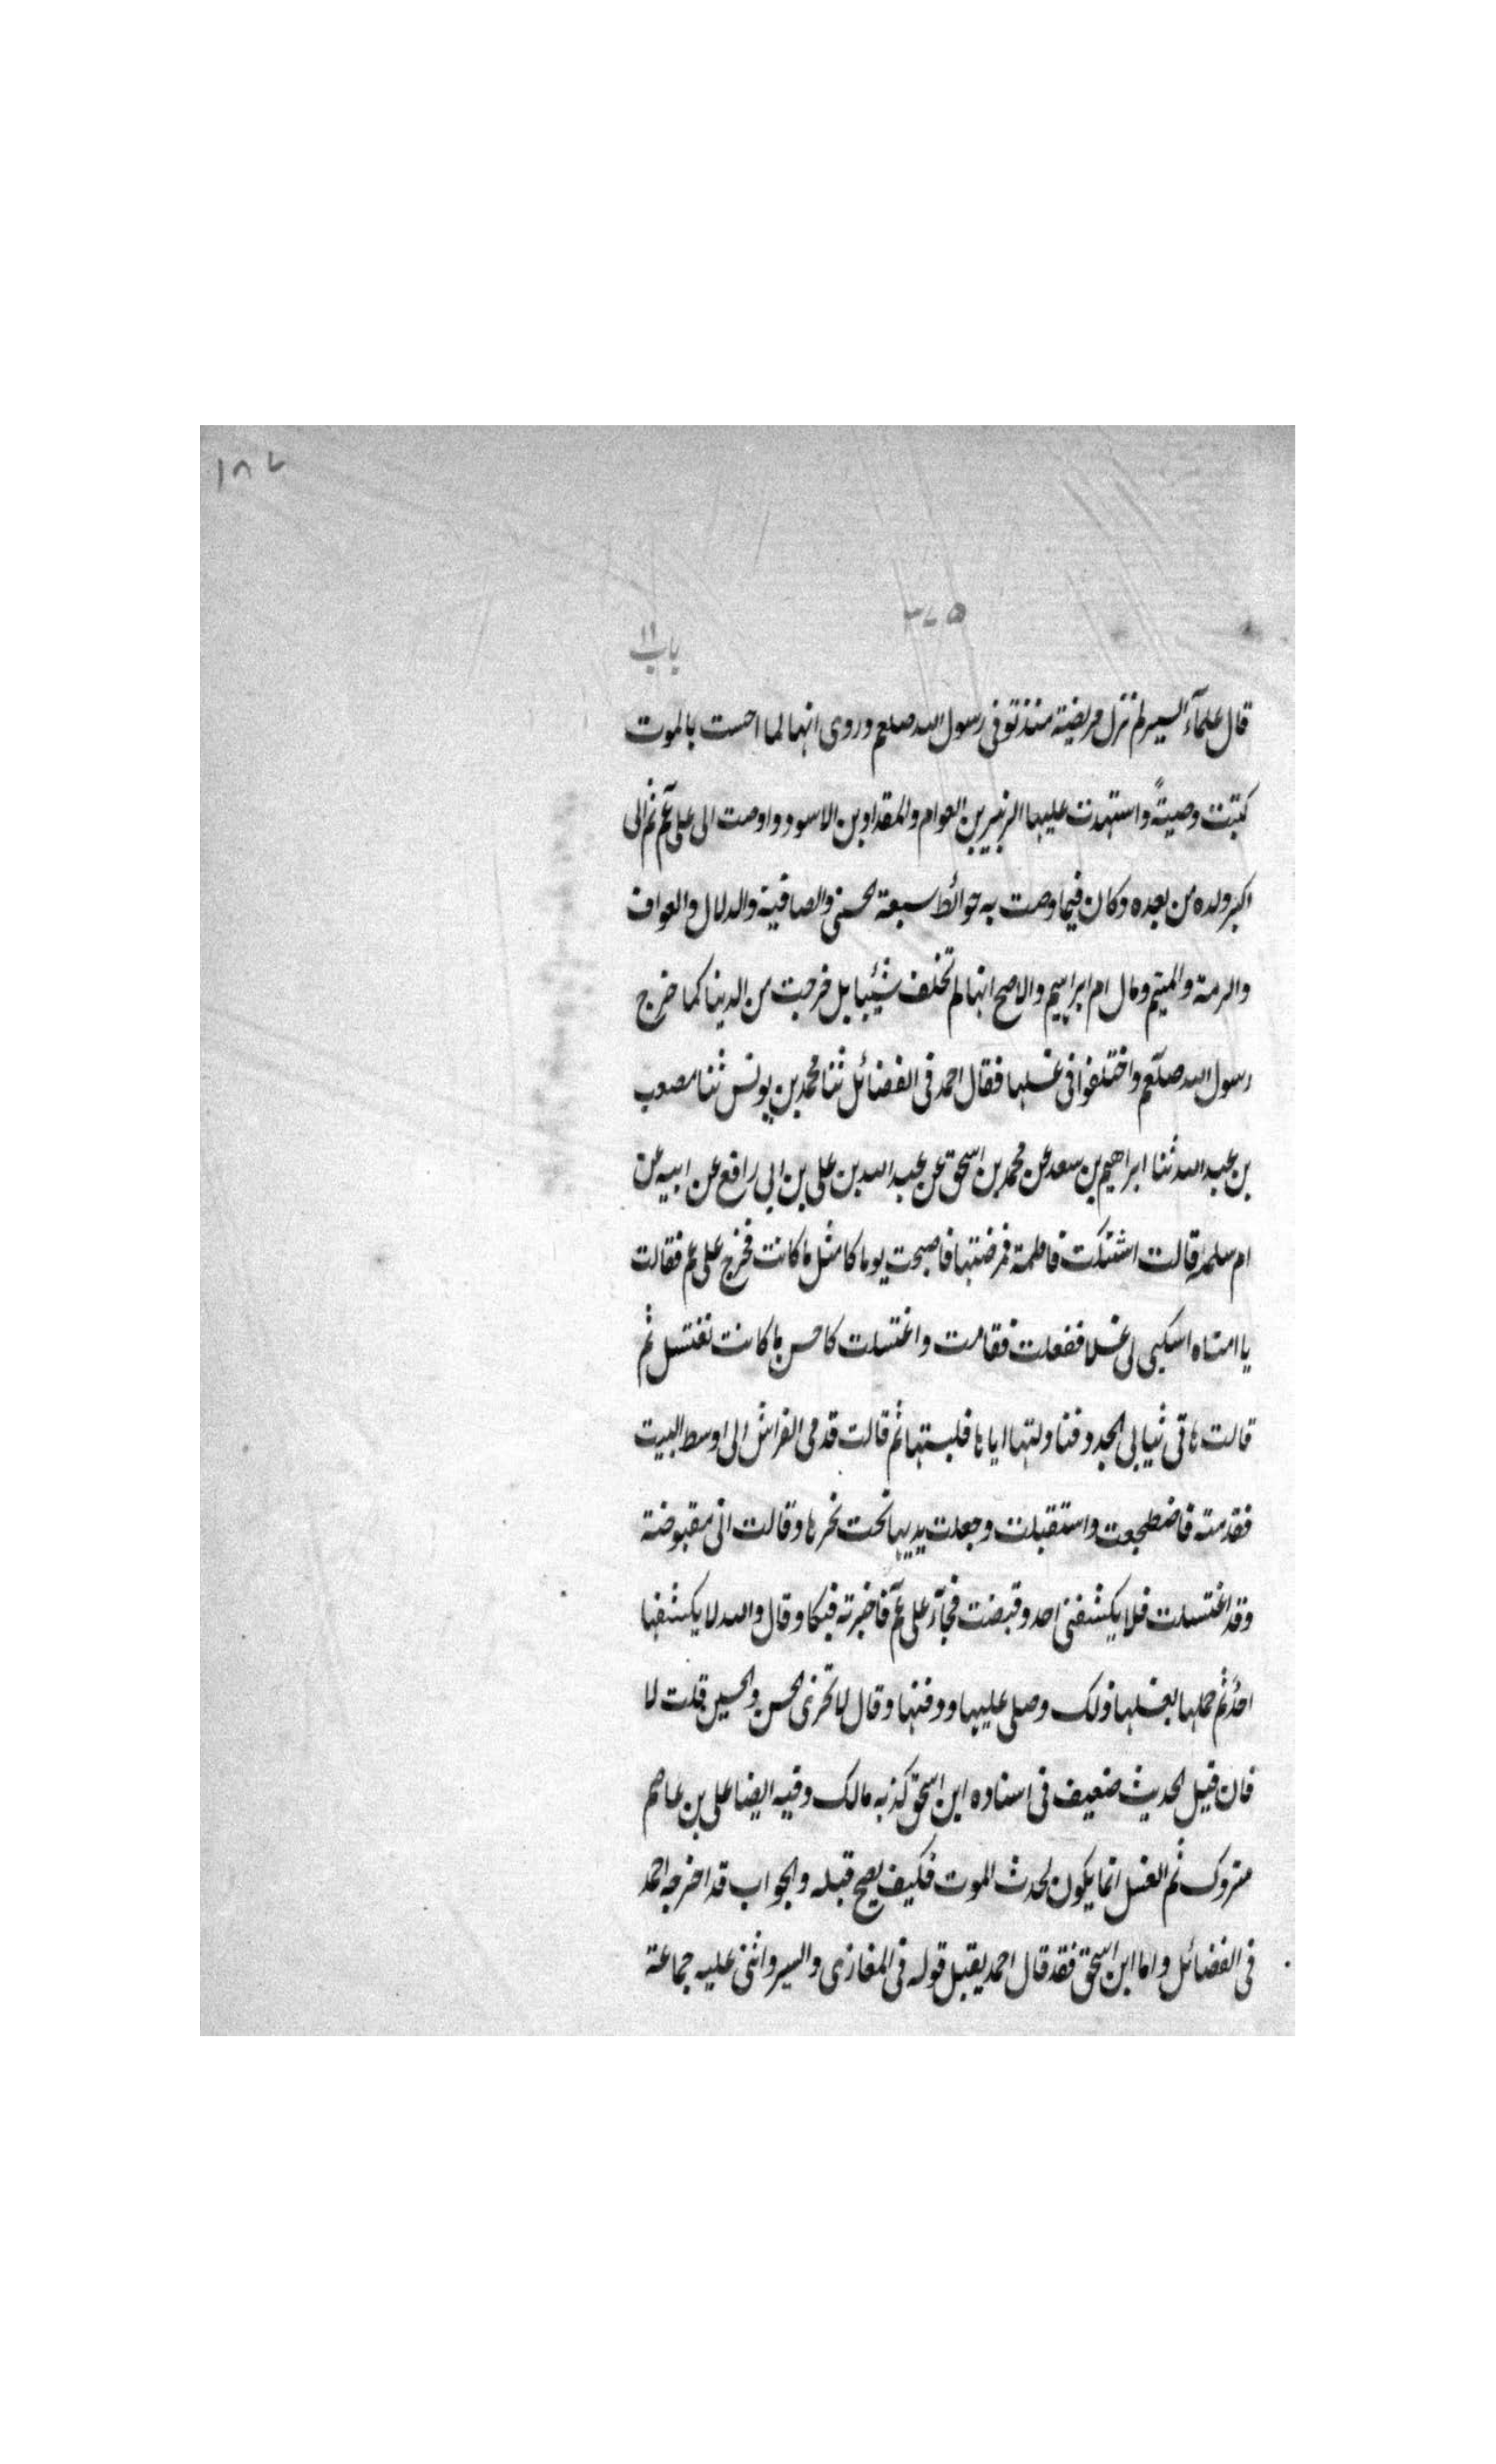 ١٨٧
٣٧٥
باب ١١
قال علمآء السير لم تزل مريضة منذ توفى رسول الله صلعم وروى انها لما احست بالموت
كتبت وصيةً واستهدت عليها الزبير بن العوام والمقداد بن الاسود واوصت الى على عم ثم الى
اكبر ولده من بعده وكان فيما وصت به حوائط سبعة الحسنى والصافية والدلال والعواف
والرمة والميتم ومال ام ابراهيم والاصح انها لم تخلف شيئا بل خرجت من الدنيا كما خرج
رسول الله صلعم واختلفوا فى غسلها فقال احمد فى الفضائل ثنا محمد بن يونس ثنا مصعب
بن عبد الله ثنا ابراهيم بن سعد عن محمد بن اسحق عن عبد الله بن على بن ابى رافع عن ابيه عن
ام سلمة قالت اشتكت فاطمة فمرضتها فاصبحت يوما كامثل ما كانت فخرج على عم فقالت
يا امتاه اسكبى لى غسلا ففعلت فقامت واغتسلت كاحسن ما كانت تغتسل ثم
قالت هاتى ثيابى الجدد فناولتها اياها فلبستها ثم قالت قدمى الفراش الى اوسط البيت
فقدمته فاضطجعت واستقبلت وجعلت يديها تحت نحرها وقالت انى مقبوضة
وقد اغتسلت فلا يكشفنى احد وقبضت فجآء على عم فاخبرته فبكا وقال والله لا يكشفها
احدٌ ثم حملها بغسلها ذلك وصلى عليها ودفنها وقال لا تحزنى الحسن والحسين قلت لا
فان قيل الحديث ضعيف فى اسناده ابن اسحق كذبه مالك وفيه ايضا على بن عاصم
متروك ثم الغسل انما يكون لحدث الموت فكيف يصح قبله والجواب قد اخرجه احمد
فى الفضائل واما ابن اسحق فقد قال احمد يقبل قوله فى المغازى والسير واثنى عليه جماعة